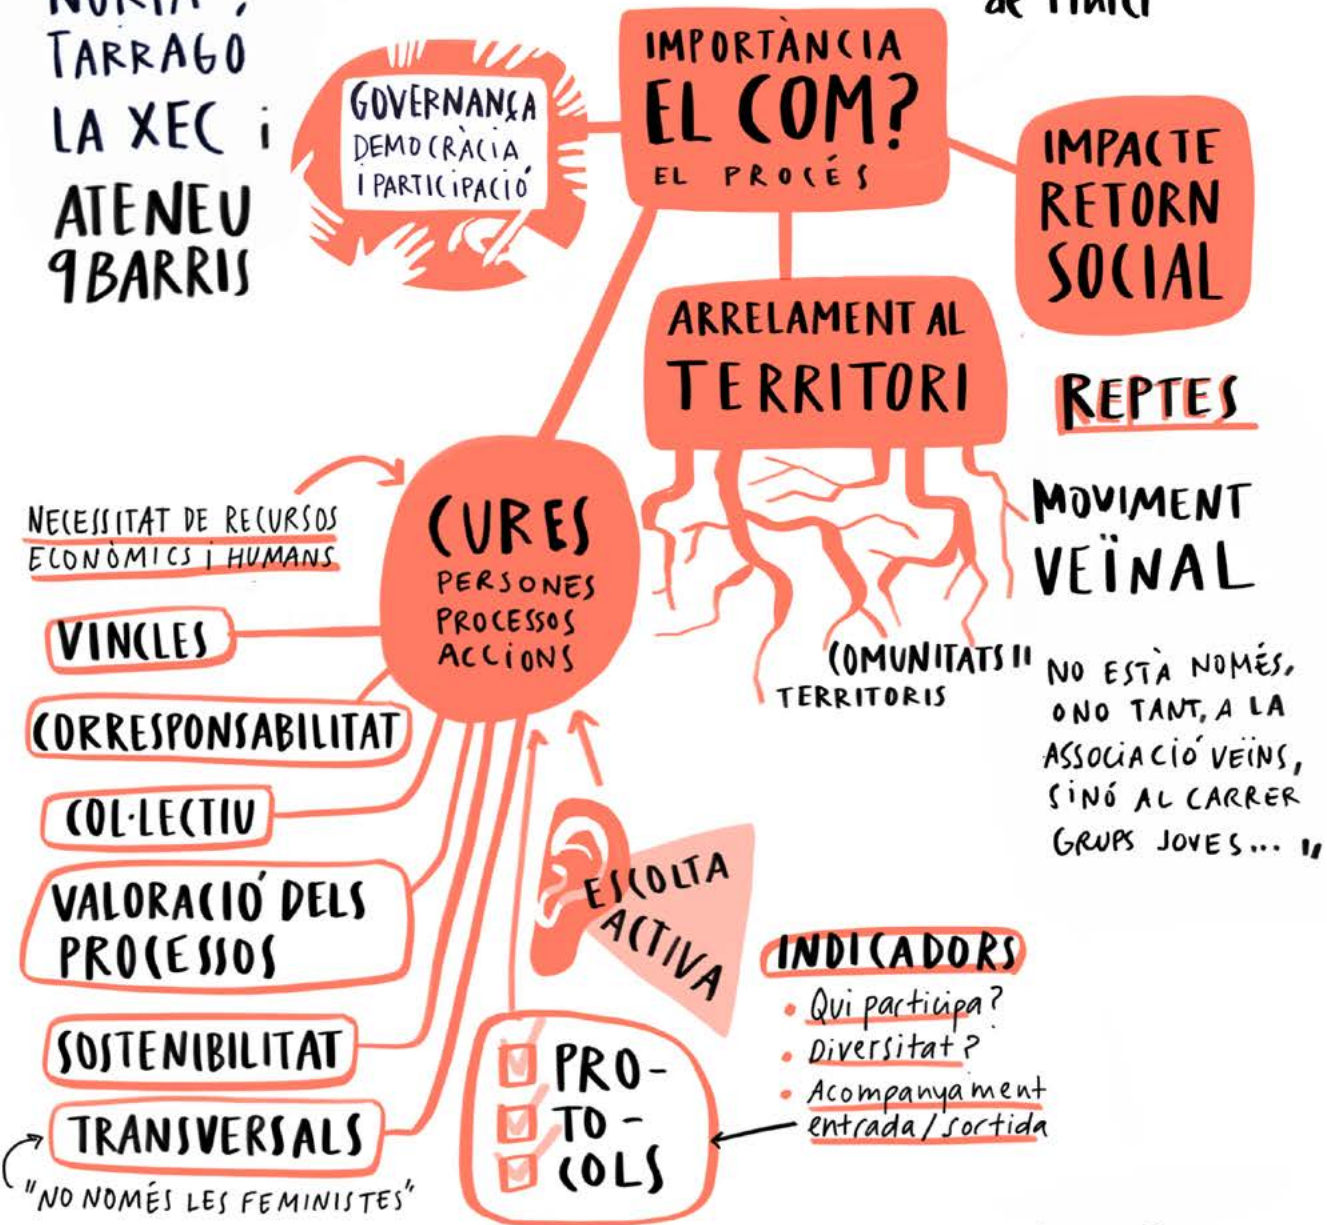 TARRAGO
LA XEC i
ATENEU
9BARRIS
GOVERNANÇA
DEMOCRÀCIA
I PARTICIPACIÓ
IMPORTÀNCIA
EL COM?
EL PROCÉS
IMPACTE
RETORN
SOCIAL
ARRELAMENT AL
TERRITORI
REPTES
MOVIMENT
VEÏNAL
COMUNITATS"
TERRITORIS
NO ESTÀ NOMÉS,
O NO TANT, A LA
ASSOCIACIÓ VEÏNS,
SINÓ AL CARRER
GRUPS JOVES... "
NECESSITAT DE RECURSOS
ECONÒMICS i HUMANS
CURES
PERSONES
PROCESSOS
ACCIONS
VINCLES
CORRESPONSABILITAT
COL·LECTIU
VALORACIÓ DELS
PROCESSOS
SOSTENIBILITAT
TRANSVERSALS
"NO NOMÉS LES FEMINISTES"
ESCOLTA
ACTIVA
PRO-
TO-
COLS
INDICADORS
• Qui participa?
• Diversitat?
• Acompanyament
entrada/sortida